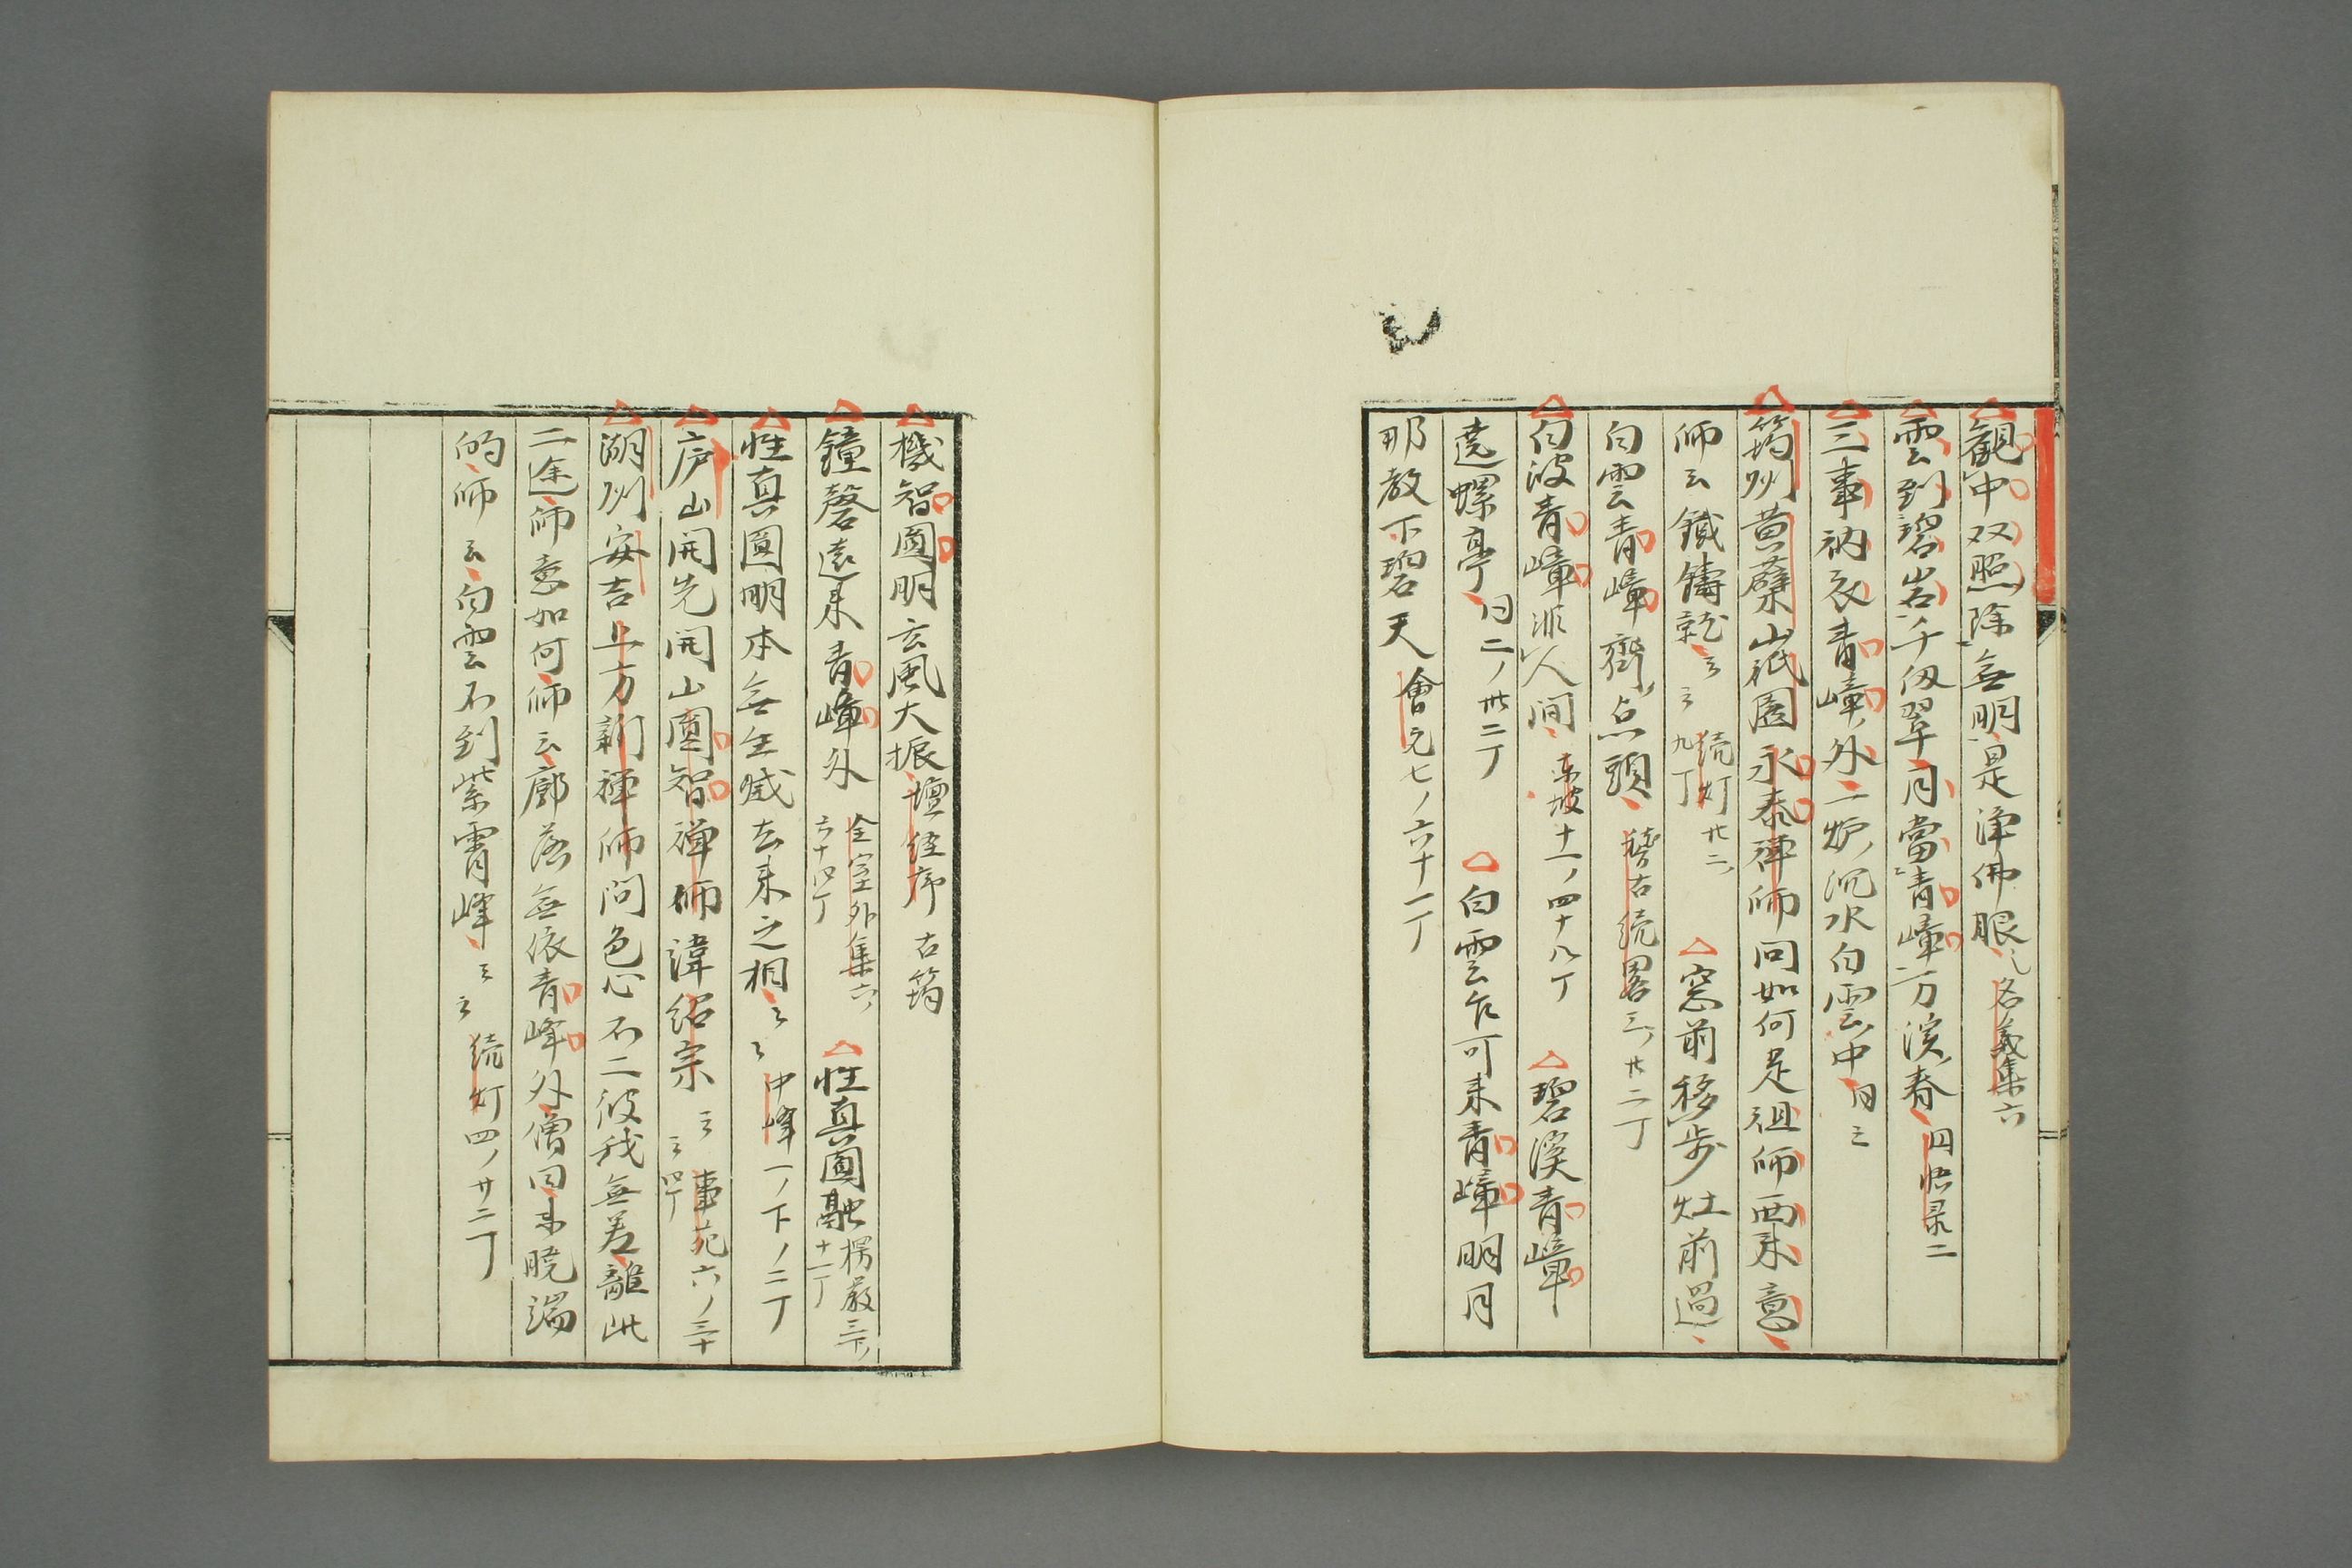 観中双照除無明是浄佛眼 名義集六
雲到碧岩千仭翠月當青嶂一方渓春 円悟录二
三事衲衣青嶂外一炉沉水白雲中 同三
筠州黄蘗山祇園永泰禅師問如何是祖師西来意
師云鐵鑄就云云 続灯廿二、九丁 △窓前移歩灶前過
白雲青嶂齊点頭 稽古続畧三、廿二丁
白波青嶂非人间 東坡十一ノ四十八丁 △碧渓青嶂
遶螺亭 同二ノ卅二丁 △白雲乍可来青嶂明月
那教下碧天 會元七ノ六十一丁
機智圓明玄風大振 壇経序 古筠
鐘磬遠来青嶂外 全室外集六、六十四丁 △性真圓融 楞嚴三下、十一丁
性真圓明本無生滅去来之相云云 中峰一ノ下ノ二丁
庐山開先開山圓智禅師諱紹宗云云 事苑六ノ三十四丁
湖州安吉上方新禅師問色心不二彼我無差離此
二途師意如何師云廓落無依青峰外僧曰未暁端
的師云白雲不到紫霄峰云云 続灯四ノ廿二丁